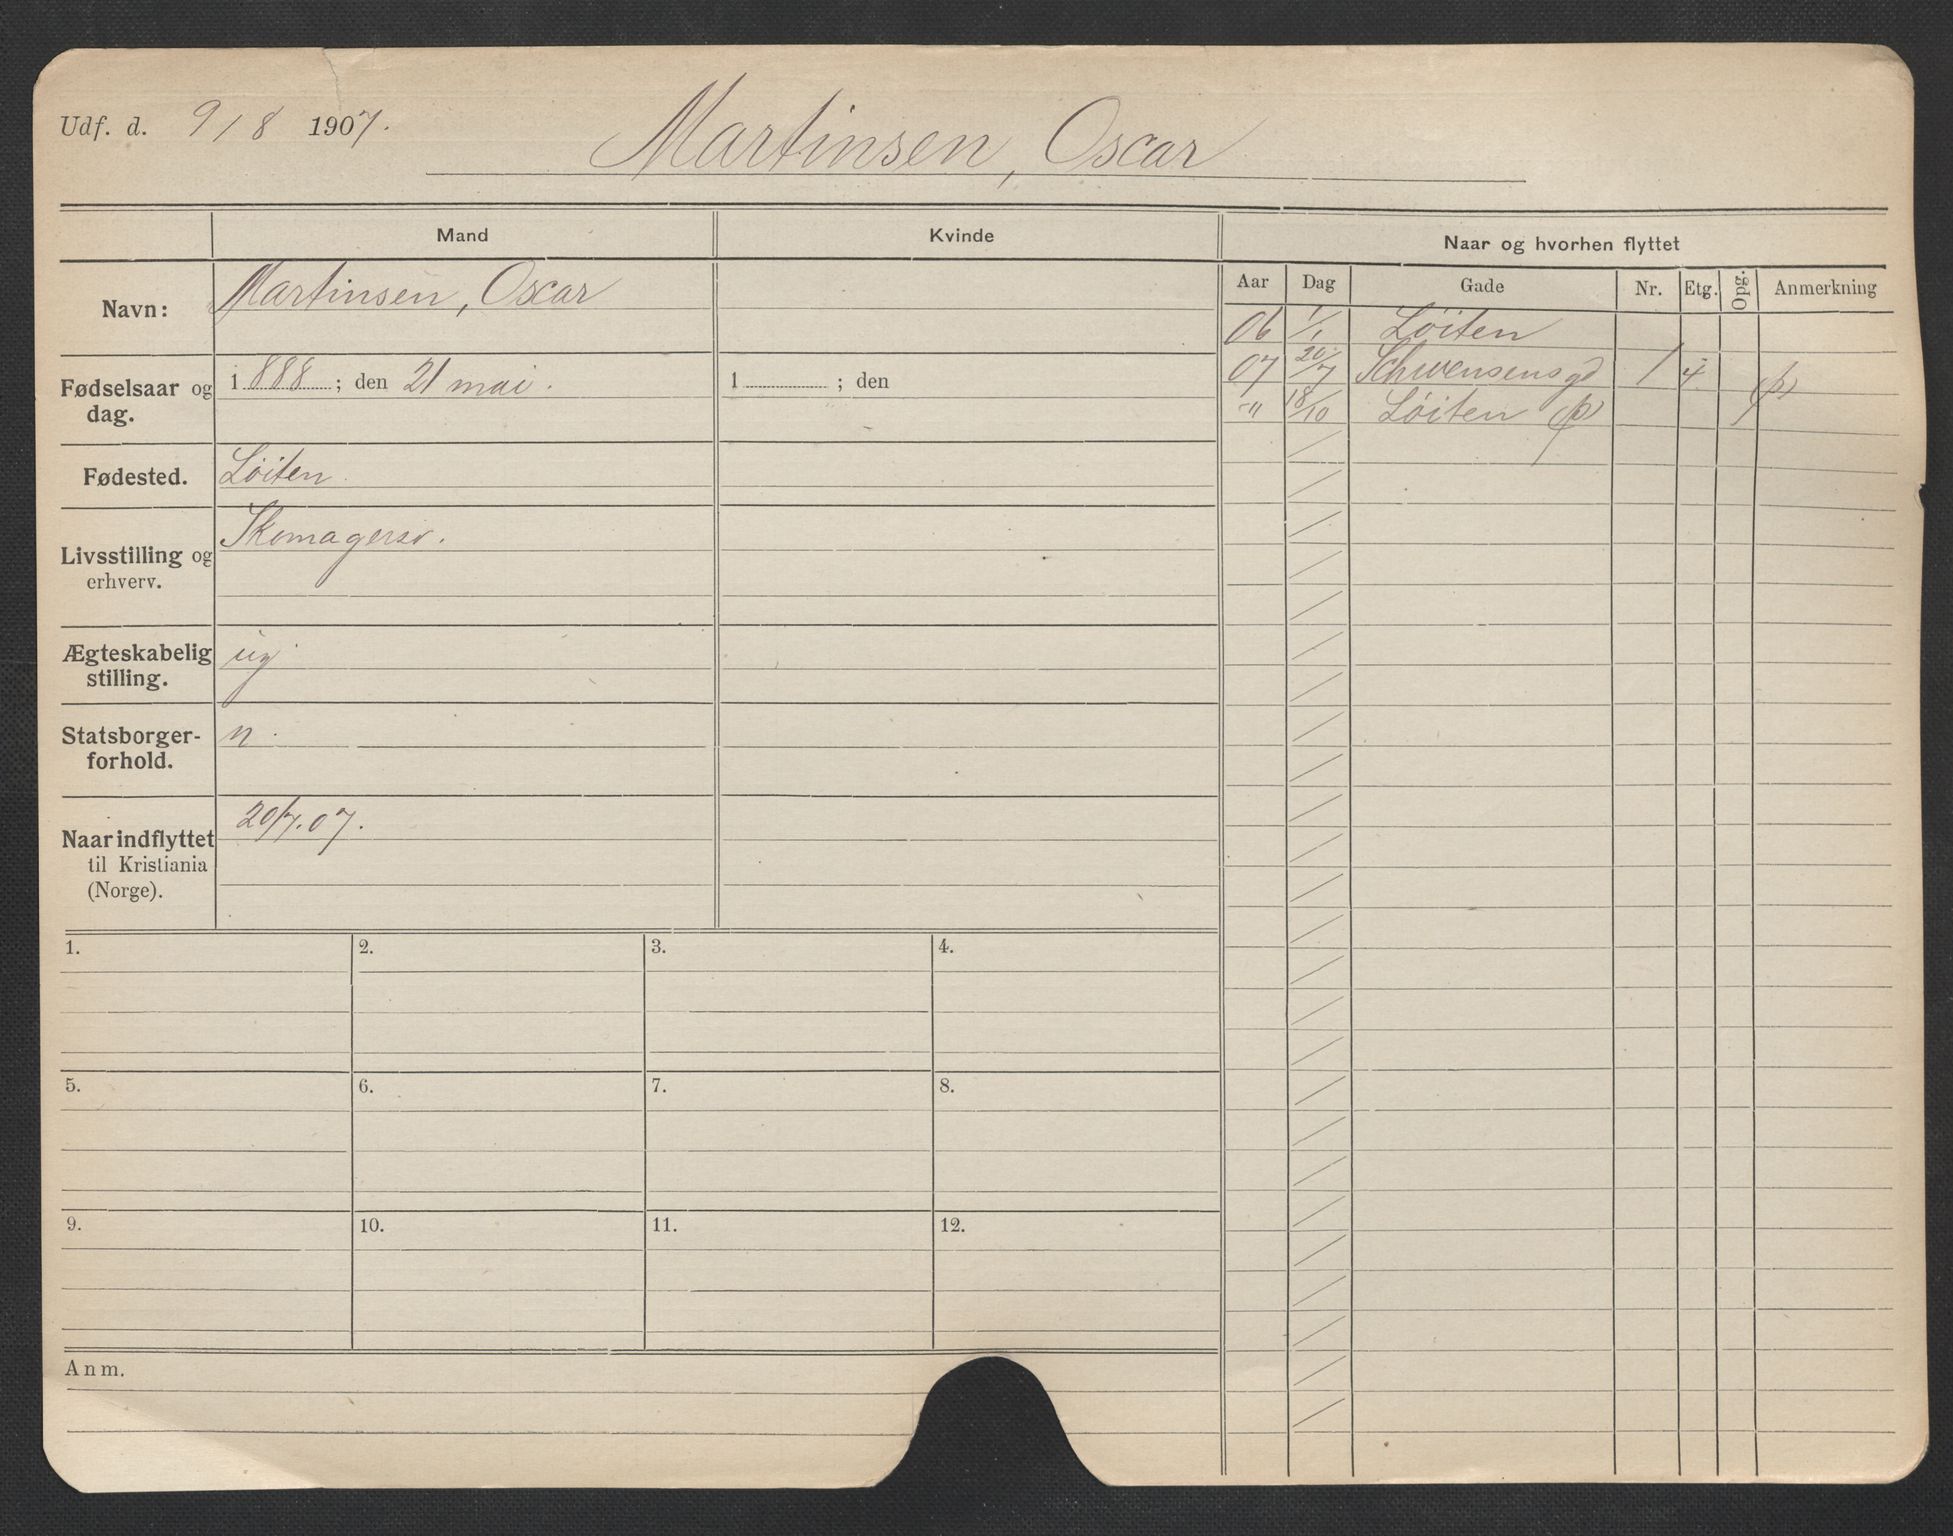 Udf. d. 9/8 1907.
Martinsen, Oscar
Mand
Kvinde
Naar og hvorhen flyttet
Navn:
Martinsen, Oscar
Fødselsaar og dag.
1888; den 21 mai.
1 ; den
Fødested.
Löiten
Livsstilling og erhverv.
Skomagersv.
Ægteskabelig stilling.
ug
Statsborgerforhold.
n.
Naar indflyttet til Kristiania (Norge).
20/7.07.
Aar Dag Gade Nr. Etg. Opg. Anmerkning
06 1/1 Löiten
07 20/7 Schwensensgd 1 4 (p)
-" 18/10 Löiten (p)
1. 2. 3. 4.
5. 6. 7. 8.
9. 10. 11. 12.
Anm.